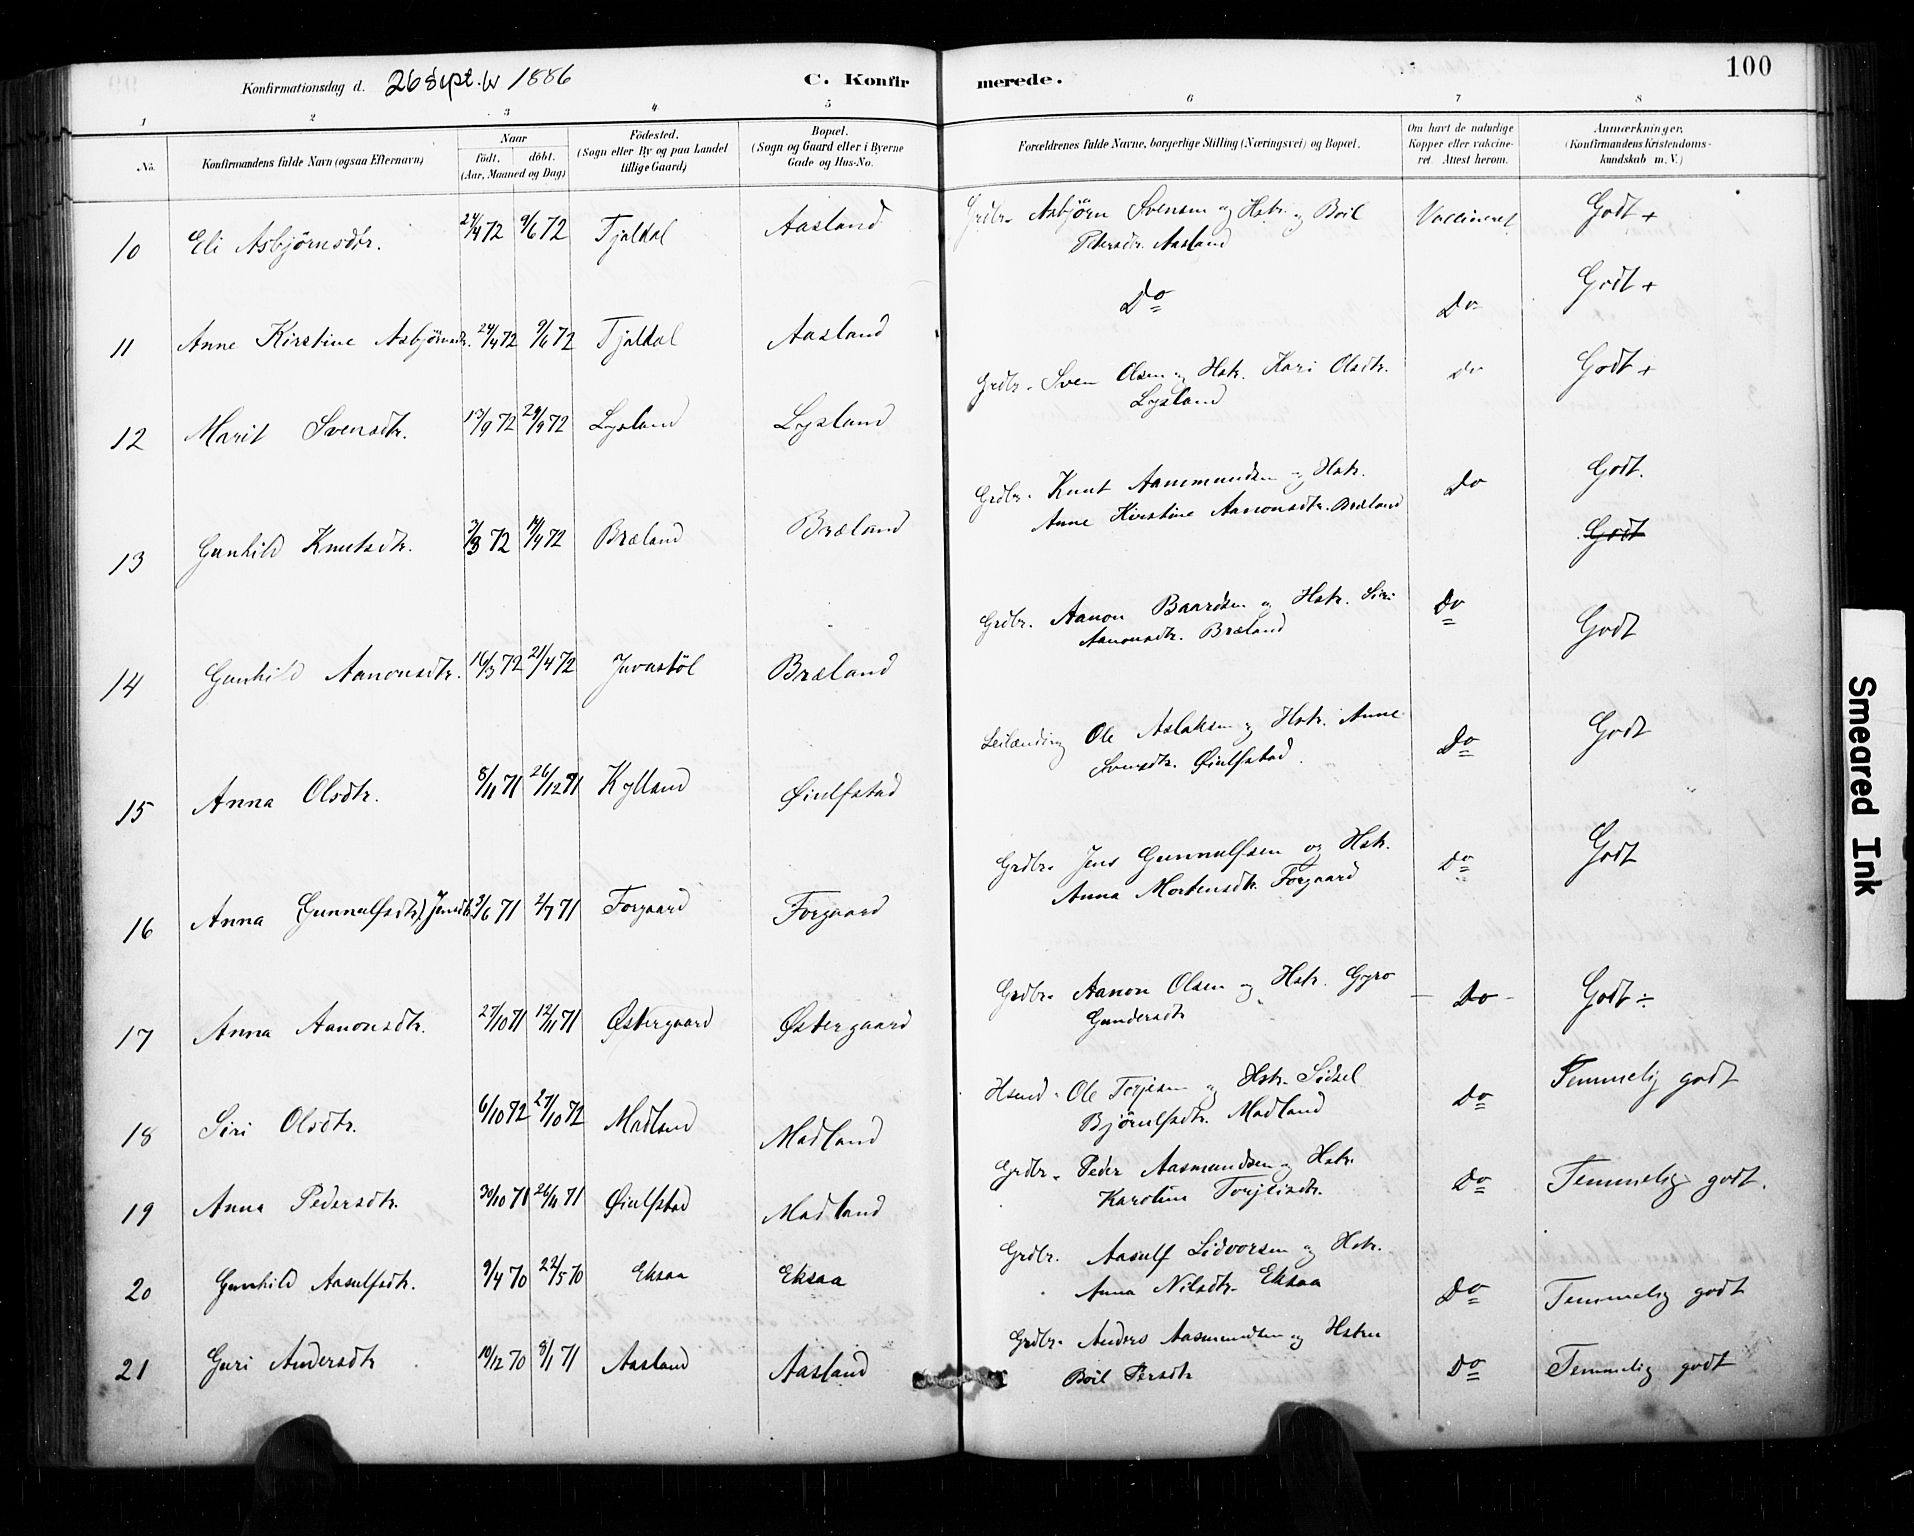 Konfirmationsdag d. 26 Sept.br 1886
C. Konfirmerede.
100
1 2 3 4 5 6 7 8
No.
Konfirmandens fulde Navn (ogsaa Efternavn)
Naar
födt. döbt.
(Aar, Maaned og Dag)
Födested.
(Sogn eller By og paa Landet tillige Gaard)
Bopæl.
(Sogn og Gaard eller i Byerne Gade og Hus-No.
Forældrenes fulde Navne, borgerlige Stilling (Næringsvei) og Bopæl.
Om havt de naturlige Kopper eller vakcineret. Attest herom.
Anmærkninger.
(Konfirmandens Kristendomskundskab m. V.)
10 Eli Asbjørnsdtr. 24/4 72 9/6 72 Tjaldal Aasland Grdbr. Asbjørn Svensen og Hstr. og Boil Vaccineret Godt +
Pedersdtr. Aasland
11 Anne Kirstine Asbjørnsdtr. 24/4 72 9/6 72 Tjaldal Aasland Do Do Godt +
12 Marit Svensdtr. 13/9 72 29/9 72 Lysland Lysland Grdbr. Sven Olsen og Hstr. Kari Olsdtr. Do Godt +
Lysland
13 Gunhild Knutsdtr. 2/3 72 14/4 72 Bræland Bræland Grdbr. Knut Aanmundsen og Hstr. Do Godt.
Anne Kirstine Aanonsdtr. Bræland Godt
14 Gunhild Aanonsdtr. 16/3 72 21/4 72 Juvastøl Bræland Grdbr. Aanon Baardsen og Hstr. Siri Do Godt
Aanonsdtr. Bræland
15 Anna Olsdtr. 8/11 71 26/12 71 Kylland Øiulfstad Leilænding Ole Aslaksen og Hstr. Anne Do Godt
Svensdtr. Øiulfstad.
16 Anna (Gunnulfsdtr) Jensdtr. 3/6 71 2/7 71 Forgaard Forgaard Grdbr. Jens Gunnulfsen og Hstr. Do Godt
Anna Mortensdtr. Forgaard
17 Anna Aanonsdtr. 27/10 71 12/11 71 Østergaard Østergaard Grdbr. Aanon Olsen og Hstr. Gyro - Do - Godt ÷
Gundersdtr
18 Siri Olsdtr. 6/10 72 27/10 72 Madland Madland Hsmd. Ole Terjesen og Hstr. Sidsel Do Temmelig godt
Bjørulfsdtr. Madland
19 Anna Pedersdtr. 30/10 71 26/11 71 Øiulfstad Madland Grdbr. Peder Aasmundsen og Hstr. Do Temmelig godt.
Karoline Torjusdtr.
20 Gunhild Aasulfsdtr. 9/4 70 22/5 70 Eksaa Eksaa Grdbr. Aasulf Lidvorsen og Hstr. Do Temmelig godt
Anna Nilsdtr. Eksaa
21 Guri Andersdtr 10/12 70 8/1 71 Aasland Aasland Grdbr. Anders Aasmundsen og Hstru Do Temmelig godt
Boil Persdtr
Smeared Ink